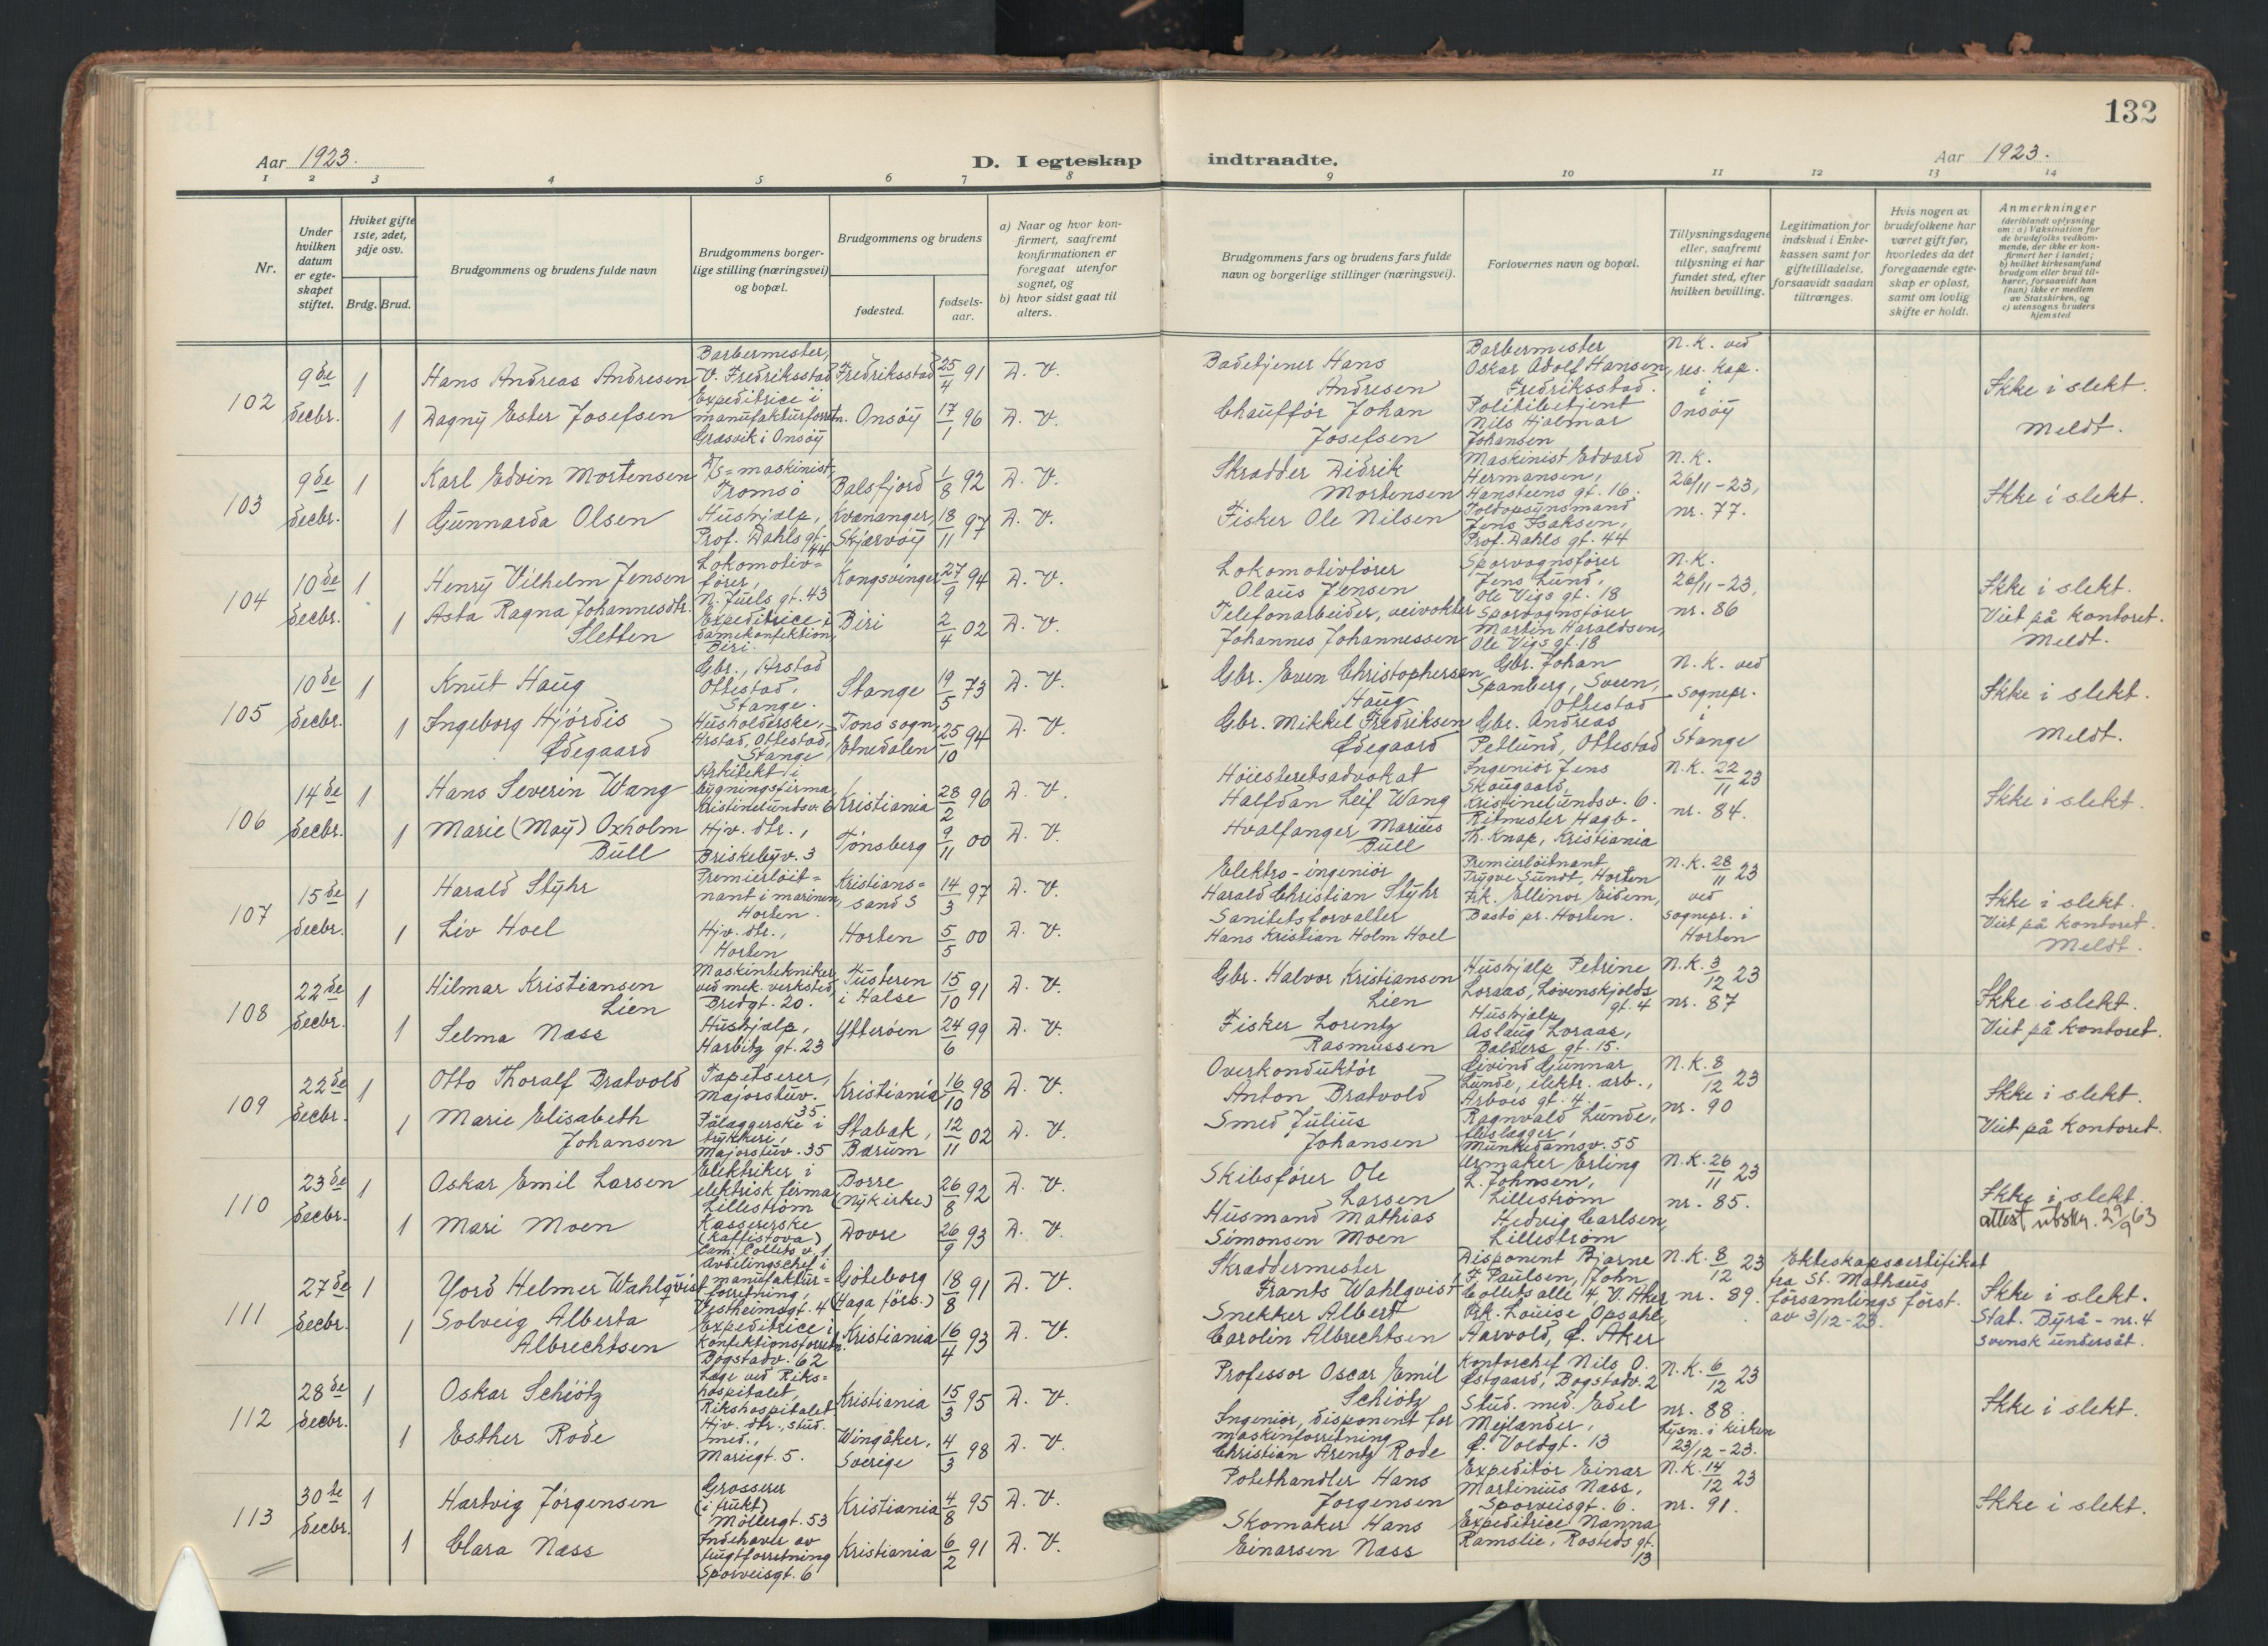 132
Aar 1923.
D. I egteskap indtraadte.
Aar 1923.
1 2 3 4 5 6 7 8 9 10 11 12 13 14
Nr.
Under hvilken datum er egteskapet stiftet.
Hviket gifte 1ste, 2det, 3dje osv.
Brdg. Brud.
Brudgommens og brudens fulde navn
Brudgommens borgerlige stilling (næringsvei) og bopæl.
Brudgommens og brudens
fødested.
fødselsaar.
a) Naar og hvor konfirmert, saafremt konfirmationen er foregaat utenfor sognet, og
b) hvor sidst gaat til alters.
Brudgommens fars og brudens fars fulde navn og borgerlige stillinger (næringsvei).
Forlovernes navn og bopæl.
Tillysningsdagene eller, saafremt tillysning ei har fundet sted, efter hvilken bevilling.
Legitimation for indskud i Enkekassen samt for giftetilladelse, forsaavidt saadan tiltrænges.
Hvis nogen av brudefolkene har været gift før, hvorledes da det foregaaende egteskap er opløst, samt om lovlig skifte er holdt.
Anmerkninger
(deriblandt oplysning om: a) Vaksination for de brudefolks vedkommende, der ikke er konfirmert her i landet; b) hvilket kirkesamfund brudgom eller brud tilhører, forsaavidt han (hun) ikke er medlem av Statskirken, og c) utensogns bruders hjemsted
102
9de decbr.
1 Hans Andreas Andresen
Barbermester, V. Fredriksstad
Fredriksstad 25/4 91 D. V.
1 Dagny Ester Josefsen
Expeditrice i manufakturforretn. Græsvik i Onsøy
Onsøy 17/1 96 D. V.
Badebetjener Hans Andresen
Chauffør Johan Josefsen
Barbermester Oskar Adolf Hansen, Fredriksstad.
Politibetjent Nils Hjalmar Johansen
N. K. ved res. kap. i Onsøy
Ikke i slekt.
Meldt.
103
9de decbr.
1 Karl Edvin Mortensen
D/S=maskinist, Tromsø
Balsfjord 1/8 92 D. V.
1 Gunnarda Olsen
Hushjælp, Prof. Dahls gt. 44
Kvænanger, Skjærvøy 18/11 97 D. V.
Skrædder Didrik Mortensen
Fisker Ole Nilsen
Maskinist Edvard Hermansen, Hansteens gt. 16.
Toldopsynsmand Jens Isaksen, Prof. Dahls gt. 44
N. K. 26/11-23, nr. 77.
Ikke i slekt.
104
10de decbr.
1 Henry Vilhelm Jensen
Lokomotivfører, N. Juels gt. 43
Kongsvinger 27/9 94 D. V.
1 Asta Ragna Johannesdtr. Sletten
Expeditrice i damekonfektion, Biri.
Biri 2/4 02 D. V.
Lokomotivfører Olaus Jensen
Telefonarbeider, veivokter Johannes Johannessen
Sporvognsfører Jens Lund, Ole Vigs gt. 18
Sporvognsfører Martin Haraldsen, Ole Vigs gt. 18
N. K. 26/11-23, nr. 86
Ikke i slekt.
Viet på kontoret.
Meldt.
105
10de decbr.
1 Knut Haug
Gbr., Arstad Ottestad, Stange.
Stange 19/5 73 D. V.
1 Ingeborg Hjørdis Ødegaard
Husholderske, Arstad, Ottestad, Stange
Tons sogn, Etnedalen 25/10 94 D. V.
Gbr. Even Christophersen Haug
Gbr. Mikkel Fredriksen Ødegaard
Gbr. Johan Spanberg, Sveen, Ottestad
Gbr. Andreas Petlund, Ottestad
N. K. ved sognepr. i Stange
Ikke i slekt.
Meldt.
106
14de decbr.
1 Hans Severin Wang
Arkitekt i bygningsfirma, Kristinelundsv. 6
Kristiania 28/2 96 D. V.
1 Marie (May) Oxholm Bull
Hjv. dtr., Briskebyv. 3
Tønsberg 9/11 00 D. V.
Høiesteretsadvokat Halfdan Leif Wang
Hvalfanger Marius Bull
Ingeniør Jens Skougaard, Kristinelundsv. 6.
Ritmester Hagb. Th. Knap, Kristiania
N. K. 22/11 23 nr. 84.
Ikke i slekt.
107
15de decbr.
1 Harald Styhr
Premierløitnant i marinen, Horten.
Kristianssand S 14/3 97 D. V.
1 Liv Hoel
Hjv. dtr., Horten
Horten 5/5 00 D. V.
Elektro-ingeniør Harald Christian Styhr
Sanitetsforvalter Hans Kristian Holm Hoel
Premierløitnant Trygve Sundt, Horten
Frk. Ellinor Eidem, Bastø pr. Horten.
N. K. 28/11 23 ved sognepr. i Horten
Ikke i slekt.
Viet på kontoret.
Meldt.
108
22de decbr.
1 Hilmar Kristiansen Lien
Maskintekniker ved mek. verksted, Bredgt. 20.
Tusteren i Halse 15/10 91 D. V.
1 Selma Næss
Hushjælp, Harbitz gt. 23
Ytterøen 24/6 99 D. V.
Gbr. Halvor Kristiansen Lien
Fisker Lorentz Rasmussen
Hushjælp Petrine Loraas, Løvenskjolds gt. 4
Hushjælp Aslaug Loraas, Balders gt. 15.
N. K. 3/12 23 nr. 87
Ikke i slekt.
Viet på kontoret.
109
22de decbr.
1 Otto Thoralf Bratvold
Tapetserer, Majorstuv. 35.
Kristiania 16/10 98 D. V.
1 Marie Elisabeth Johansen
Pålæggerske i trykkeri, Majorstuv. 35
Stabæk, Bærum 12/11 02 D. V.
Overkonduktør Anton Bratvold
Smed Julius Johansen
Eivind Gunnar Lunde, elektr. arb., Arbos gt. 4.
Ragnvald Lunde, fliselægger, Munkedamsv. 55
N. K. 8/12 23 nr. 90
Ikke i slekt.
Viet på kontoret.
110
23de decbr.
1 Oskar Emil Larsen
Elektriker i elektrisk firma Lillestrøm
Borre (Nykirke) 26/8 92 D. V.
1 Mari Moen
Kassererske (Kaffistova) Cam. Colletts v. 1
Dovre 26/9 93 D. V.
Skibsfører Ole Larsen
Husmand Mathias Simonsen Moen
Urmaker Erling L. Johnsen, Lillestrøm
Hedvig Carlsen, Lillestrøm
N. K. 26/11 23 nr. 85.
Ikke i slekt.
attest utskr. 29/9 63
111
27de decbr.
1 Yord Helmer Wahlqvist
Avdelingschef i manufakturforretning, Vestheimsgt. 4
Göteborg (Haga förs.) 18/8 91 D. V.
1 Solveig Alberta Albrechtsen
Expeditrice i konfektionsforretn. Bogstadv. 62
Kristiania 16/4 93 D. V.
Skræddermester Frants Wahlqvist
Snekker Albert Carolin Albrechtsen
Disponent Bjarne F. Paulsen, John Colletts alle 4, V. Aker
Frk. Louise Opsahl, Aarvold, Ø. Aker
N. K. 8/12 23 nr. 89.
Ekteskapscertifikat fra St. Mathæus församlings först. av 3/12-23.
Ikke i slekt.
Stat. Byrå - nr. 4
svensk undersåt.
112
28de decbr.
1 Oskar Schiøtz
Læge ved Rikshospitalet, Rikshospitalet.
Kristiania 15/3 95 D. V.
1 Esther Rode
Hjv. dtr., stud. med., Mariegt. 5.
Wingåker, Sverige 4/3 98 D. V.
Professor Oscar Emil Schiøtz
Ingeniør, disponent for maskinforretning Christian Arentz Rode
Kontorchef Nils O. Østgaard, Bogstadv. 2
Stud. med. Edel Mejlænder, Ø. Voldgt. 13
N. K. 6/12 23 nr. 88.
Lysn. i kirken 23/12-23.
Ikke i slekt.
113
30te decbr.
1 Hartvig Jørgensen
Grosserer (i frukt) Møllergt. 53
Kristiania 4/8 95 D. V.
1 Clara Næss
Indehaver av frugtforretning Sporveisgt. 6
Kristiania 6/2 91 D. V.
Potethandler Hans Jørgensen
Skomaker Hans Einarsen Næss
Expeditør Einar Martinius Næss, Sporveisgt. 6.
Expeditrice Nanna Ramslie, Rosteds gt. 13
N. K. 14/12 23 nr. 91.
Ikke i slekt.